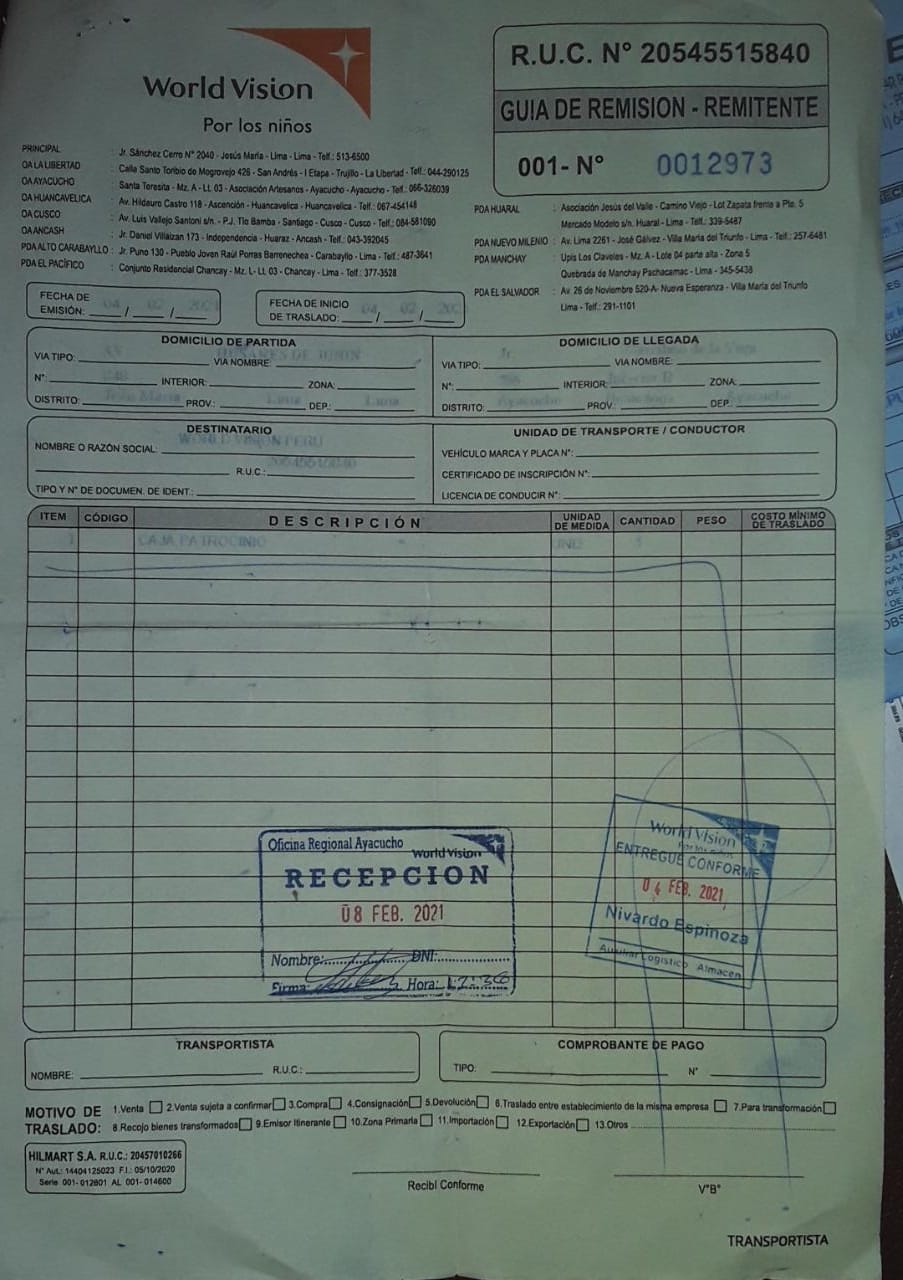 World Vision
Por los niños
R.U.C. N° 20545515840
GUIA DE REMISION - REMITENTE
001- N° 0012973
PRINCIPAL : Jr. Sánchez Cerro N° 2040 - Jesús María - Lima - Lima - Telf.: 513-6500
OA LA LIBERTAD : Calla Santo Toribio de Mogrovejo 426 - San Andrés - I Etapa - Trujillo - La Libertad - Telf.: 044-290125
OA AYACUCHO : Santa Teresita - Mz. A - Lt. 03 - Asociación Artesanos - Ayacucho - Ayacucho - Telf.: 066-326039
OA HUANCAVELICA : Av. Hildauro Castro 118 - Ascención - Huancavelica - Huancavelica - Telf.: 067-454148
OA CUSCO : Av. Luis Vallejo Santoni s/n. - P.J. Tío Bamba - Santiago - Cusco - Cusco - Telf.: 084-581090
OA ANCASH : Jr. Daniel Villaizan 173 - Independencia - Huaraz - Ancash - Telf.: 043-392045
PDA ALTO CARABAYLLO : Jr. Puno 130 - Pueblo Joven Raúl Porras Barrenechea - Carabayllo - Lima - Telf.: 487-3641
PDA EL PACÍFICO : Conjunto Residencial Chancay - Mz. L - Lt. 03 - Chancay - Lima - Telf.: 377-3528
PDA HUARAL : Asociación Jesús del Valle - Camino Viejo - Lot Zapata frente a Pte. 5
Mercado Modelo s/n. Huaral - Lima - Telf.: 339-5487
PDA NUEVO MILENIO : Av. Lima 2261 - José Gálvez - Villa María del Triunfo - Lima - Telf.: 257-6481
PDA MANCHAY : Upis Los Claveles - Mz. A - Lote 04 parte alta - Zona 5
Quebrada de Manchay Pachacamac - Lima - 345-5438
PDA EL SALVADOR : Av. 26 de Noviembre 520-A- Nueva Esperanza - Villa María del Triunfo
Lima - Telf.: 291-1101
FECHA DE EMISIÓN: 04 / 02 / 2021
FECHA DE INICIO DE TRASLADO: 04 / 02 / 202
DOMICILIO DE PARTIDA
VIA TIPO: VIA NOMBRE: DE JUNIN
N°: INTERIOR: ZONA:
DISTRITO: Jesus Maria PROV.: Lima DEP.: Lima
DOMICILIO DE LLEGADA
VIA TIPO: Jr. VIA NOMBRE: de la Vega
N°: INTERIOR: ZONA:
DISTRITO: Ayacucho PROV.: DEP.: Ayacucho
DESTINATARIO
NOMBRE O RAZÓN SOCIAL: WORLD VISION PERU
R.U.C.:
TIPO Y N° DE DOCUMEN. DE IDENT.:
UNIDAD DE TRANSPORTE / CONDUCTOR
VEHÍCULO MARCA Y PLACA N°:
CERTIFICADO DE INSCRIPCIÓN N°:
LICENCIA DE CONDUCIR N°:
ITEM CÓDIGO DESCRIPCIÓN UNIDAD DE MEDIDA CANTIDAD PESO COSTO MÍNIMO DE TRASLADO
1 CAJA PATROCINIO UND 3
Oficina Regional Ayacucho
World Vision
RECEPCION
08 FEB. 2021
Nombre: DNI:
Firma: Hora: 12:36
World Vision
Por los niños
ENTREGUE CONFORME
04 FEB. 2021
Nivardo Espinoza
Auxiliar Logistico Almacen
TRANSPORTISTA
NOMBRE: R.U.C.:
COMPROBANTE DE PAGO
TIPO: N°
MOTIVO DE TRASLADO:
1.Venta 2.Venta sujeta a confirmar 3.Compra 4.Consignación 5.Devolución 6.Traslado entre establecimiento de la misma empresa 7.Para transformación
8.Recojo bienes transformados 9.Emisor Itinerante 10.Zona Primaria 11.Importación 12.Exportación 13.Otros
HILMART S.A. R.U.C.: 20457010266
N° Aut.: 14404125023 F.I.: 05/10/2020
Serie 001- 012801 AL 001- 014600
Recibí Conforme
V°B°
TRANSPORTISTA